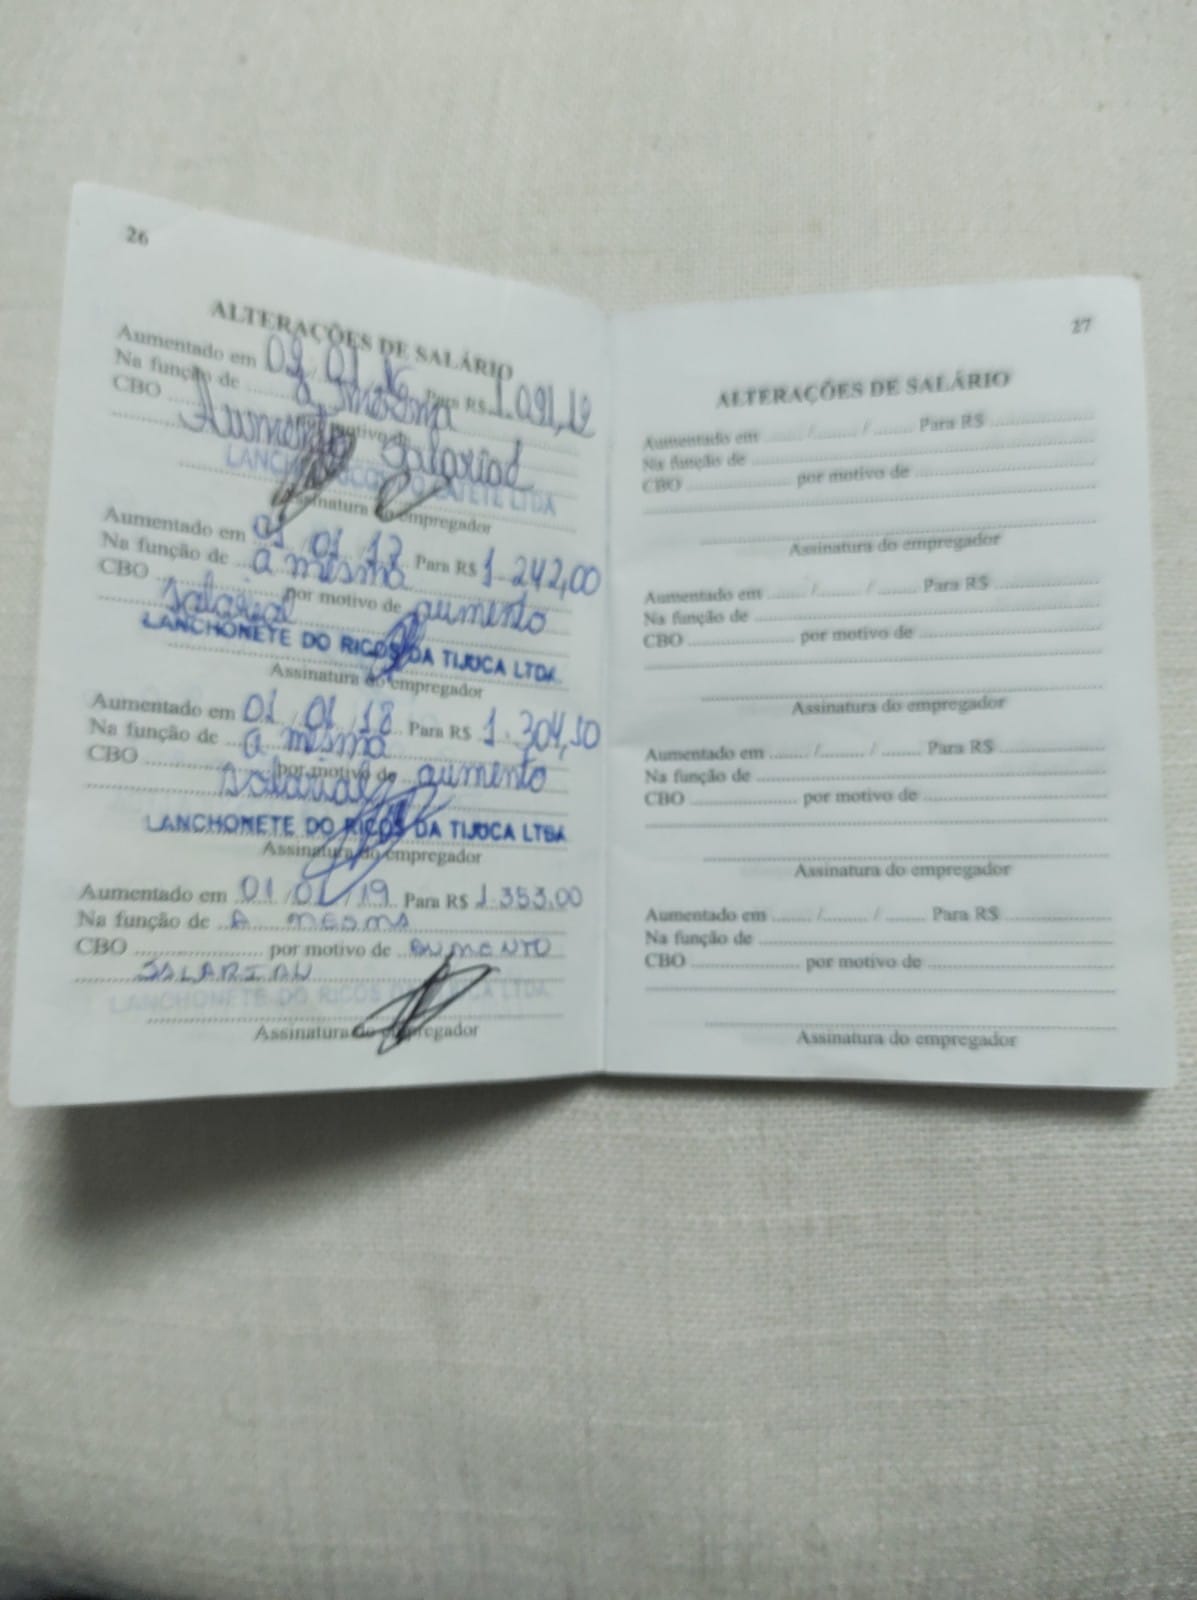 26
ALTERAÇÕES DE SALÁRIO
Aumentado em 01 Para R$ 1.091,12
Na função de a mesma
CBO por motivo de
Aumento Salarial
LANCH CATETE LTDA
Assinatura do empregador
Aumentado em 01 / 01 / Para R$ 1.242,00
Na função de a mesma
CBO por motivo de aumento
salarial
LANCHONETE DO RICOS DA TIJUCA LTDA.
Assinatura do empregador
Aumentado em 01 / 01 / 18 Para R$ 1.304,10
Na função de a mesma
CBO por motivo de aumento
salarial
LANCHONETE DO RICOS DA TIJUCA LTDA
Assinatura do empregador
Aumentado em 01 / 01 / 19 Para R$ 1.353,00
Na função de A MESMA
CBO por motivo de AUMENTO
SALARIAL
LANCHONETE DO RICOS DA TIJUCA LTDA.
Assinatura do empregador
27
ALTERAÇÕES DE SALÁRIO
Aumentado em / / Para R$
Na função de
CBO por motivo de
Assinatura do empregador
Aumentado em / / Para R$
Na função de
CBO por motivo de
Assinatura do empregador
Aumentado em / / Para R$
Na função de
CBO por motivo de
Assinatura do empregador
Aumentado em / / Para R$
Na função de
CBO por motivo de
Assinatura do empregador